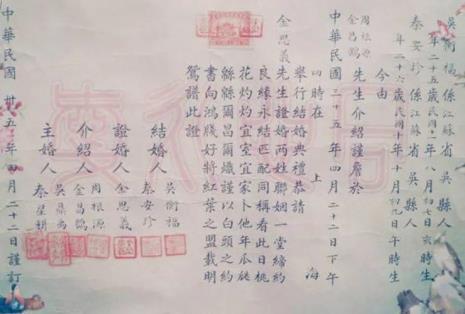 吳衡福係江蘇省吳縣人
年二十五歲民國十一年八月初七日亥時生
秦安珍係江蘇省吳縣人
年二十六歲民國十年十月初九日午時生
今由
周根源
金昌鶴
先生介紹謹詹於
中華民國三十五年四月二十二日下午
四時在上海
舉行結婚典禮恭請
金思義先生證婚兩姓聯姻一堂締約
良緣永結匹配同稱看此日桃
花灼灼宜室宜家卜他年瓜瓞
緜緜爾昌爾熾謹以白頭之約
書向鴻牋好將紅葉之盟載明
鴛譜此證
結婚人 吳衡福
秦安珍
證婚人 金思義
介紹人 周根源
金昌鶴
主婚人 吳
秦星耕
中華民國卅五年四月二十二日謹訂